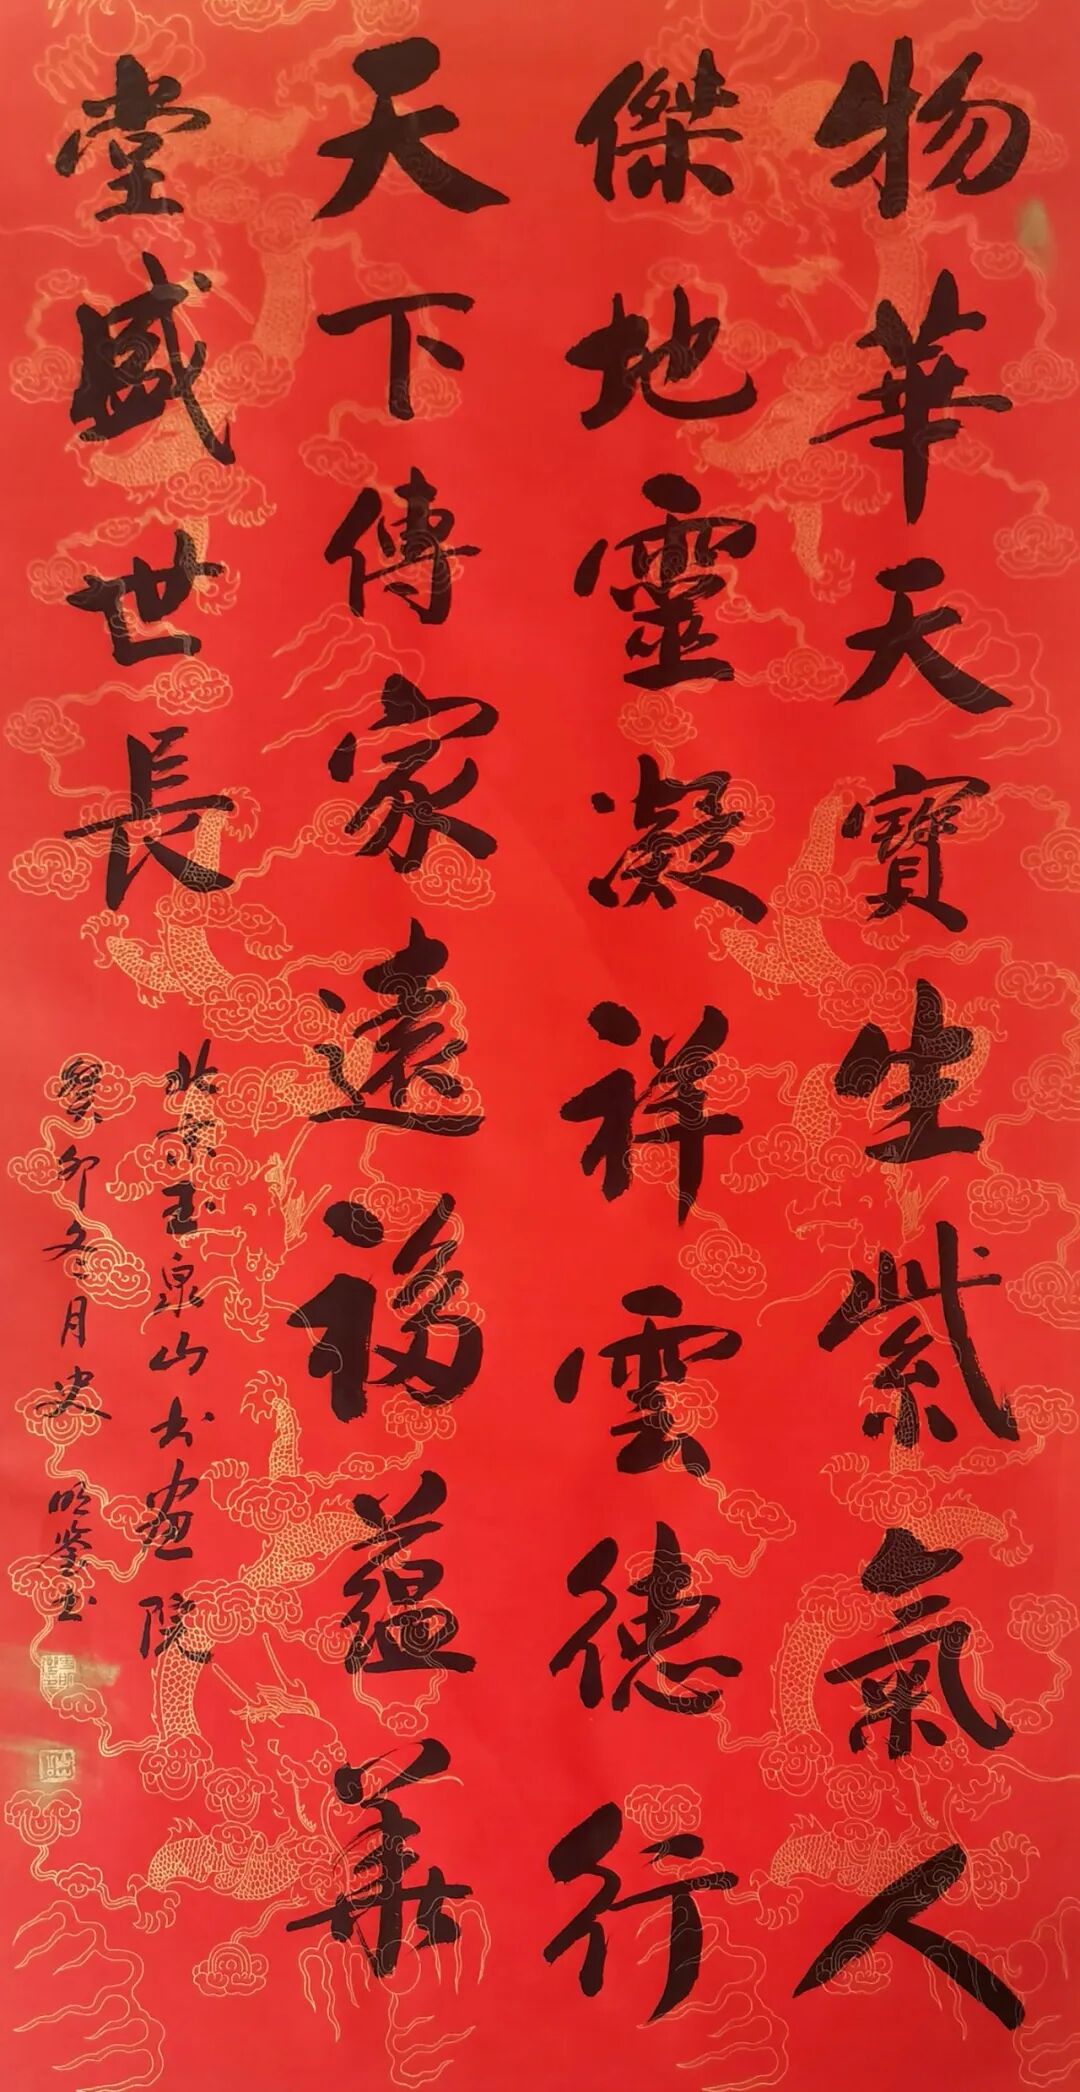 物華天寶生紫氣人
傑地靈凝祥雲德行
天下傳家遠福蘊華
堂盛世長
北京玉泉山书画院
癸卯冬月史明鉴书